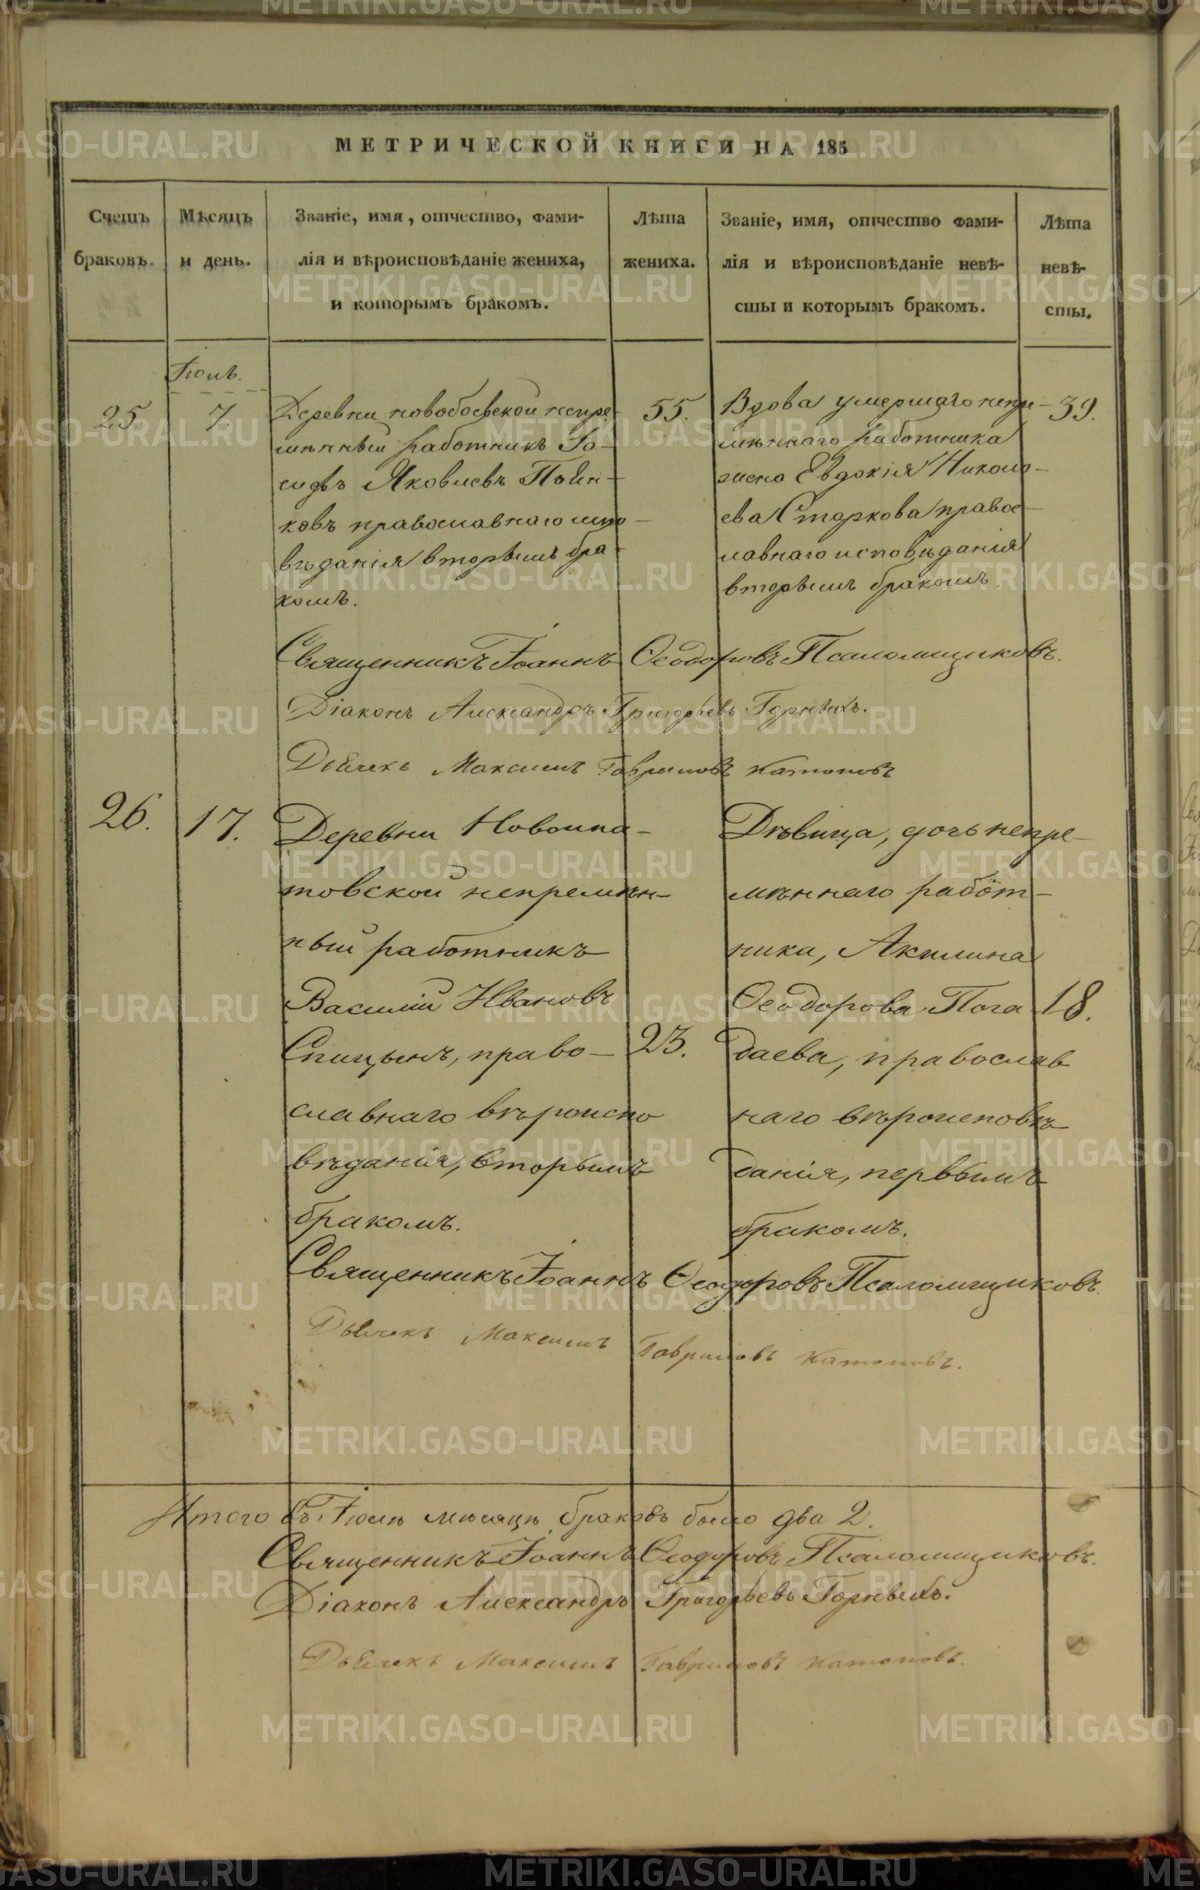 МЕТРИЧЕСКОЙ КНИГИ НА 185
Счетъ браковъ.
Мѣсяцъ и день.
Званіе, имя, отчество, фами-
лія и вѣроисповѣданіе жениха,
и которымъ бракомъ.
Лѣта жениха.
Званіе, имя, отчество фами-
лія и вѣроисповѣданіе невѣ-
сты и которымъ бракомъ.
Лѣта невѣ-
сты.
Іюль.
25
7
Деревни новобоевской непре-
мѣнный работникъ Іо-
сифъ Яковлевъ
ковъ православнаго испо-
вѣданія вторымъ бра-
комъ.
55.
Вдова умершаго непре-
мѣннаго работника
жена Евдокія Никола-
ева Старкова право-
славнаго исповѣданія
вторымъ бракомъ.
39.
Священникъ Іоаннъ Ѳеодоровъ Псаломщиковъ.
Діаконъ Александръ Григорьевъ Горныхъ.
Дьячекъ Максимъ Гавриловъ Катоновъ
26.
17.
Деревни Новоипа-
товской непремѣн-
ный работникъ
Василій Ивановъ
Спицынъ, право-
славнаго вѣроиспо
вѣданія, вторымъ
бракомъ.
23.
Дѣвица, дочь непре-
мѣннаго работ-
ника, Акилина
Ѳеодорова Пога
даева, православ
наго вѣроисповѣ
данія, первымъ
бракомъ.
18.
Священникъ Іоаннъ Ѳеодоровъ Псаломщиковъ.
Дьячекъ Максимъ Гавриловъ Катоновъ.
Итого въ Іюлѣ мѣсяцѣ браковъ было два 2.
Священникъ Іоаннъ Ѳеодоровъ Псаломщиковъ.
Діаконъ Александръ Григорьевъ Горныхъ.
Дьячекъ Максимъ Гавриловъ Катоновъ.
METRIKI.GASO-URAL.RU